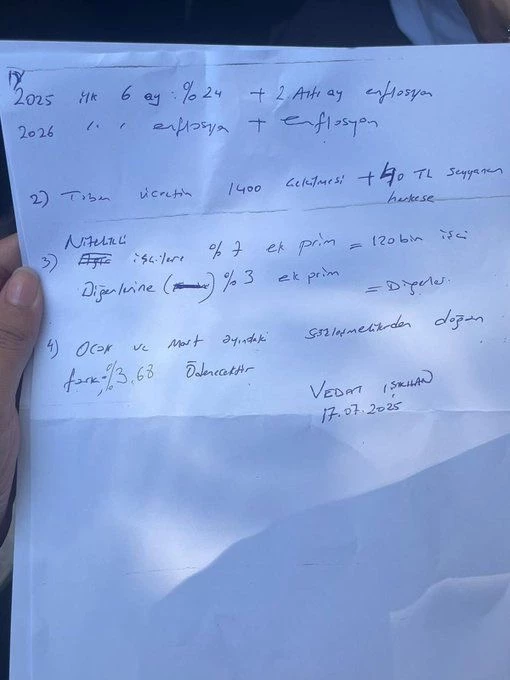 1)
2025 ilk 6 ay: %24 + 2. Altı ay enflasyon
2026 " " enflasyon + enflasyon
2) Taban ücretin 1400 çekilmesi + 40 TL seyyanen
herkese
Nitelikli
3) işçilere %7 ek prim = 120 bin işçi
Diğerlerine ( ) %3 ek prim = Diğerler.
4) Ocak ve Mart ayındaki sözleşmelilerden doğan
fark: %3.68 Ödenecektir
VEDAT IŞIKHAN
17.07.2025